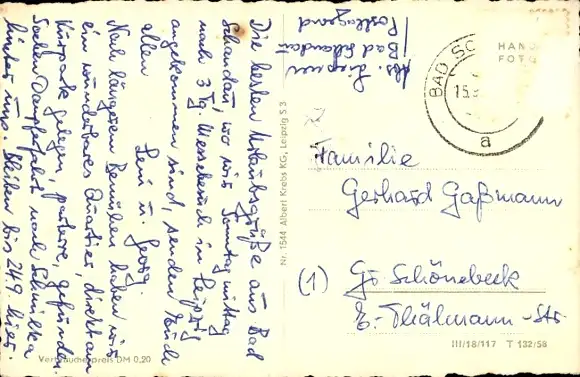 Die besten Urlaubsgrüße aus Bad
Schandau, wo wir Sonntag mittag
nach 3 Tg. Messebesuch in Leipzig
angekommen sind, senden Euch
allen
Leni u. Georg.
Nach längerem Bemühen haben wir
ein wunderbares Quartier, direkt am
Kurpark gelegen, parterre, gefunden.
Dampferfahrt nach Schmilka
hinter uns. Bleiben bis 24.9. hier.
Abs.
Bad Schandau
Postlagernd
Nr. 1544 Albert Krebs KG, Leipzig S 3
HAN
FOTO
BAD SC
15.
a
Familie
Gerhard Gaßmann
(1) Gr. Schönebeck
E.-Thälmann-Str
Verbraucherpreis DM 0,20
III/18/117 T 132/58